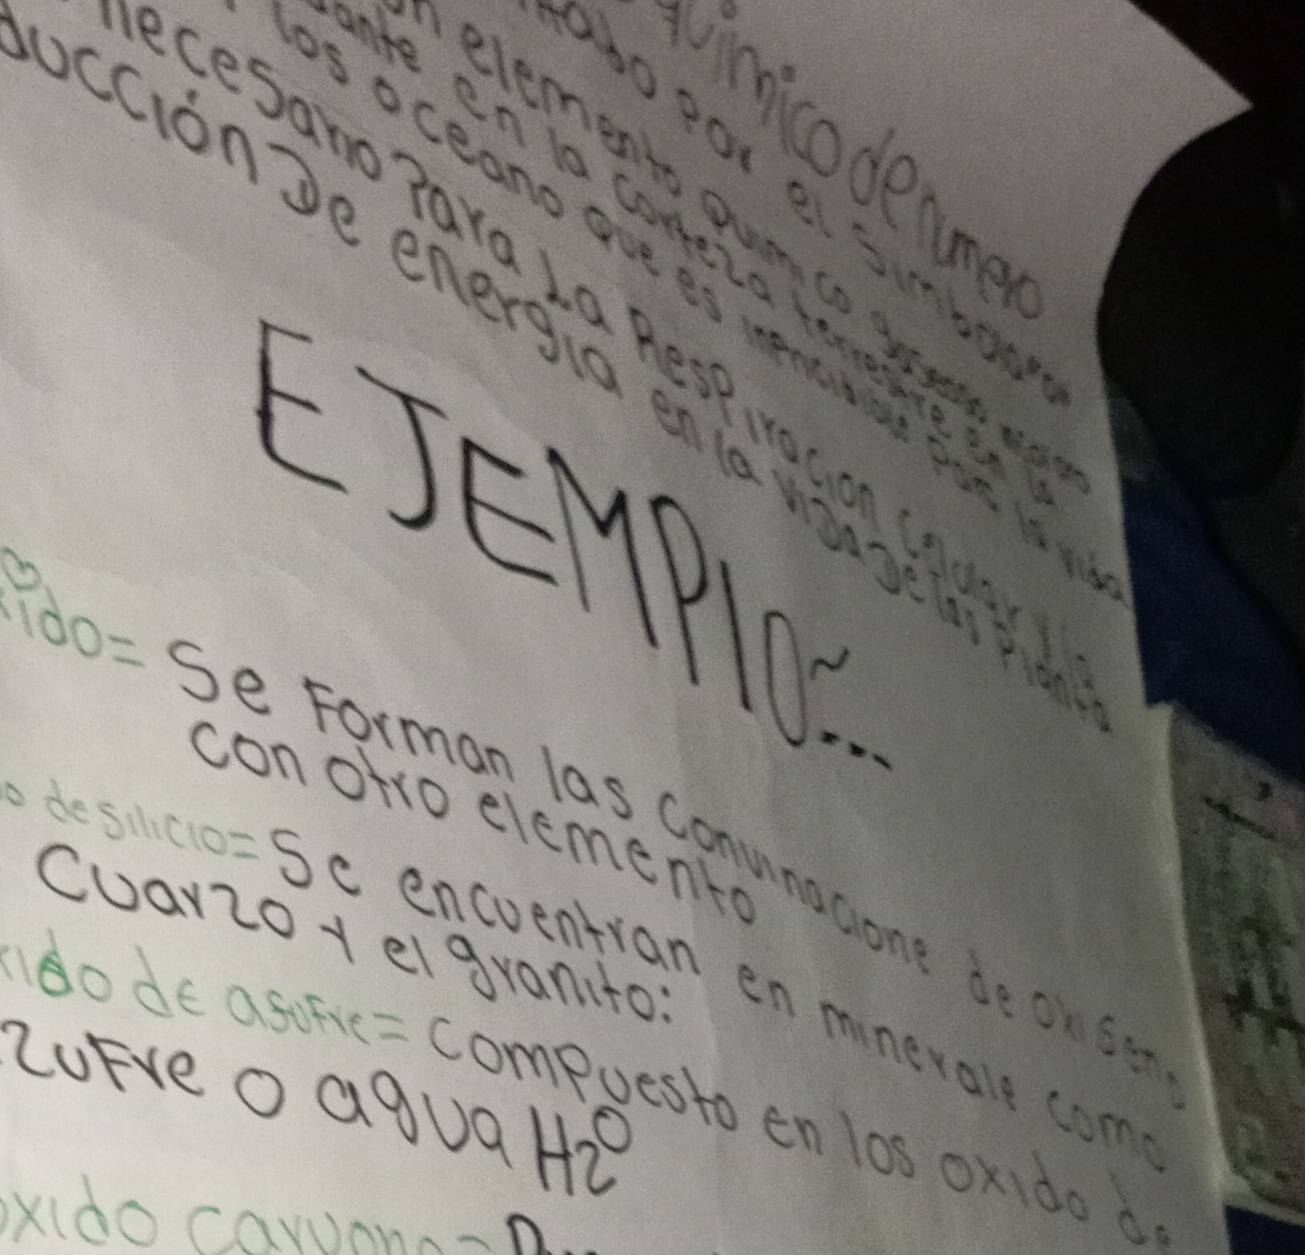 químico de numero
tado por el simbolo
un elemento químico
ante en la corteza terrestre en la
los oceano que es para la vida
necesario Para La Respiracion celular y la
ducción De energia en la viDa De las Planta
EJEMPlO~...
xido= Se Forman las convinacione de oxiseno
con otro elemento
o de silicio= Se encuentran en minerale como
Cuarzo y el granito:
xido de asufre= compuesto en los oxido de
zuFre o agua H2O
oxido carvono=